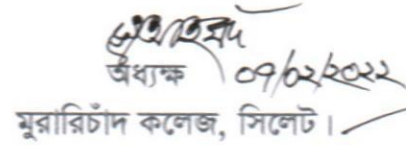 অধ্যক্ষ ০৭/০২/২০২২
মুরারিচাঁদ কলেজ, সিলেট।